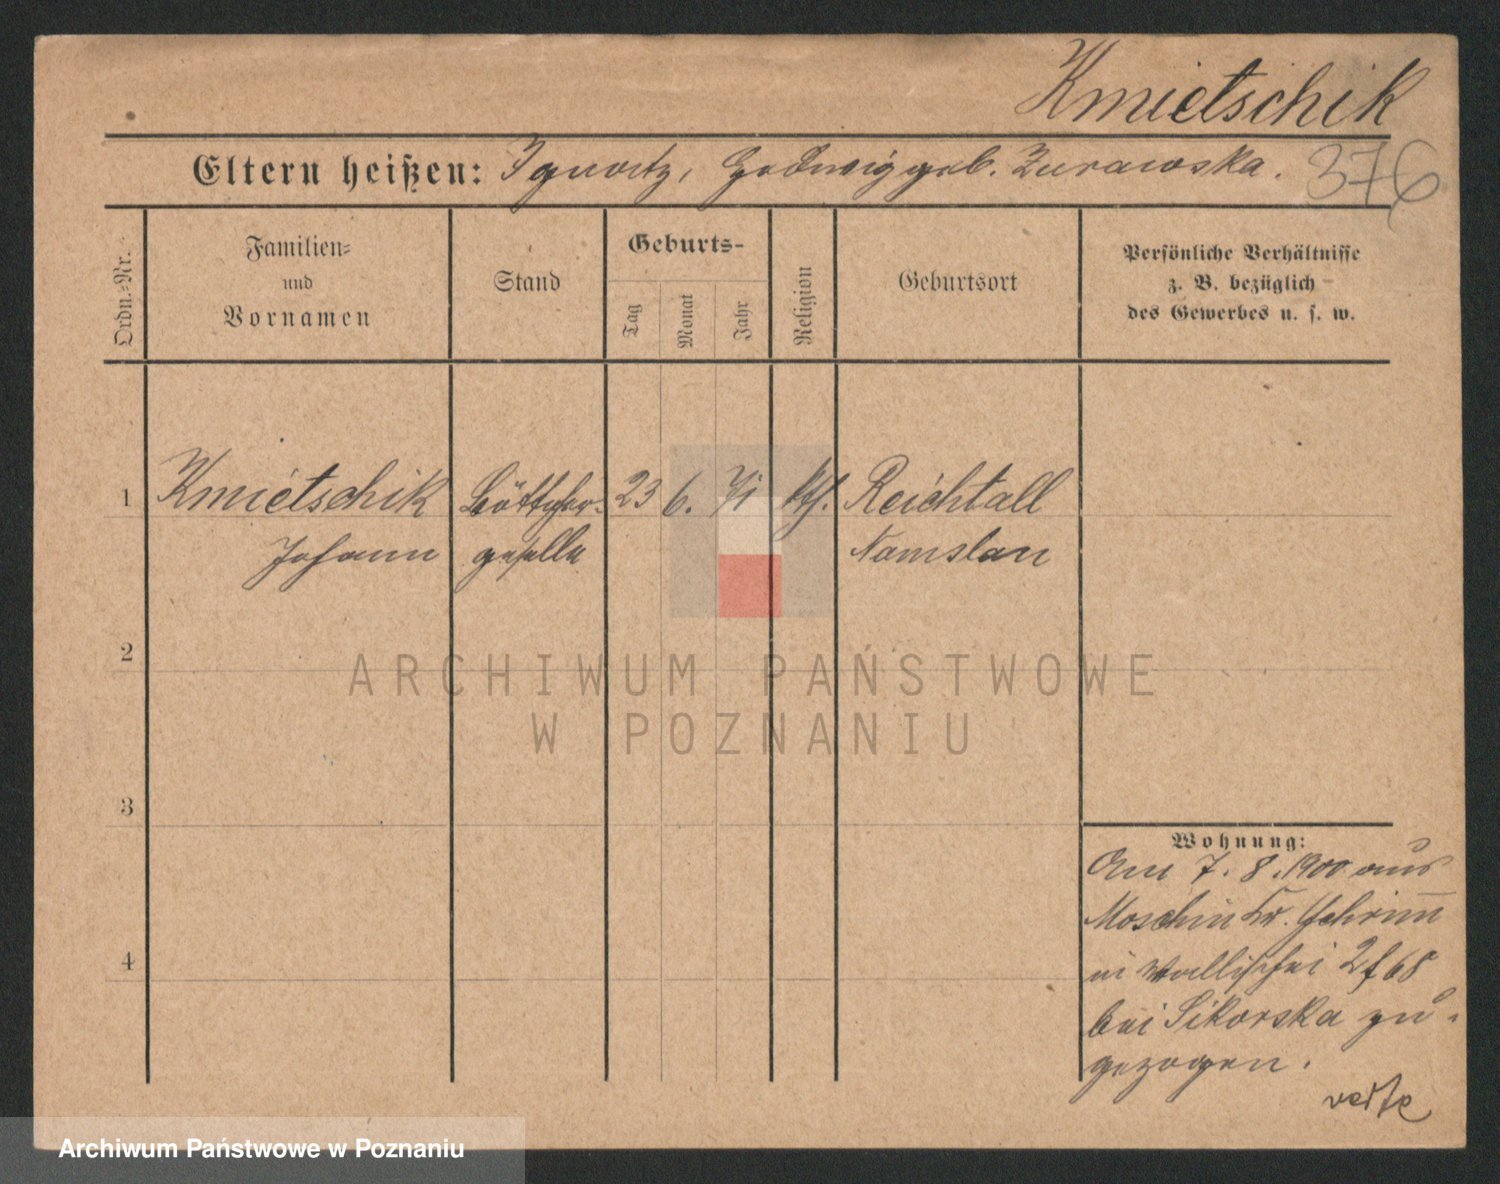 Kmietschik
Eltern heißen: Ignatz, Hedwig geb. Zurawska.
376
Ordn.-Nr.
Familien-
und
Vornamen
Stand
Geburts-
Tag
Monat
Jahr
Religion
Geburtsort
Persönliche Verhältnisse
z. B. bezüglich
des Gewerbes u. s. w.
1 Kmietschik Böttcher- 23 6. 71 kth. Reichtall
Johann geselle Namslau
2
3
4
Wohnung:
Am 7. 8. 1900 aus
Moschin Kr. Schrimm
in Wallischei 68
bei Sikorska zu-
gezogen.
verte
ARCHIWUM PAŃSTWOWE
W POZNANIU
Archiwum Państwowe w Poznaniu